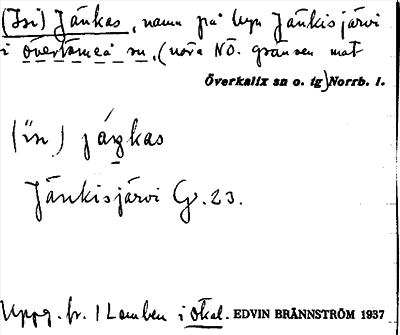 (Isi) Jänkas, namn på byn Jänkisjärvi
i övertorneå sn, (nära NÖ. gränsen mot
Överkalix sn o. tg) Norrb. l.
(ïn) jáŋkas
Jänkisjärvi Gr. 23.
Uppg. fr. i Lomben i ökal. EDVIN BRÄNNSTRÖM 1937